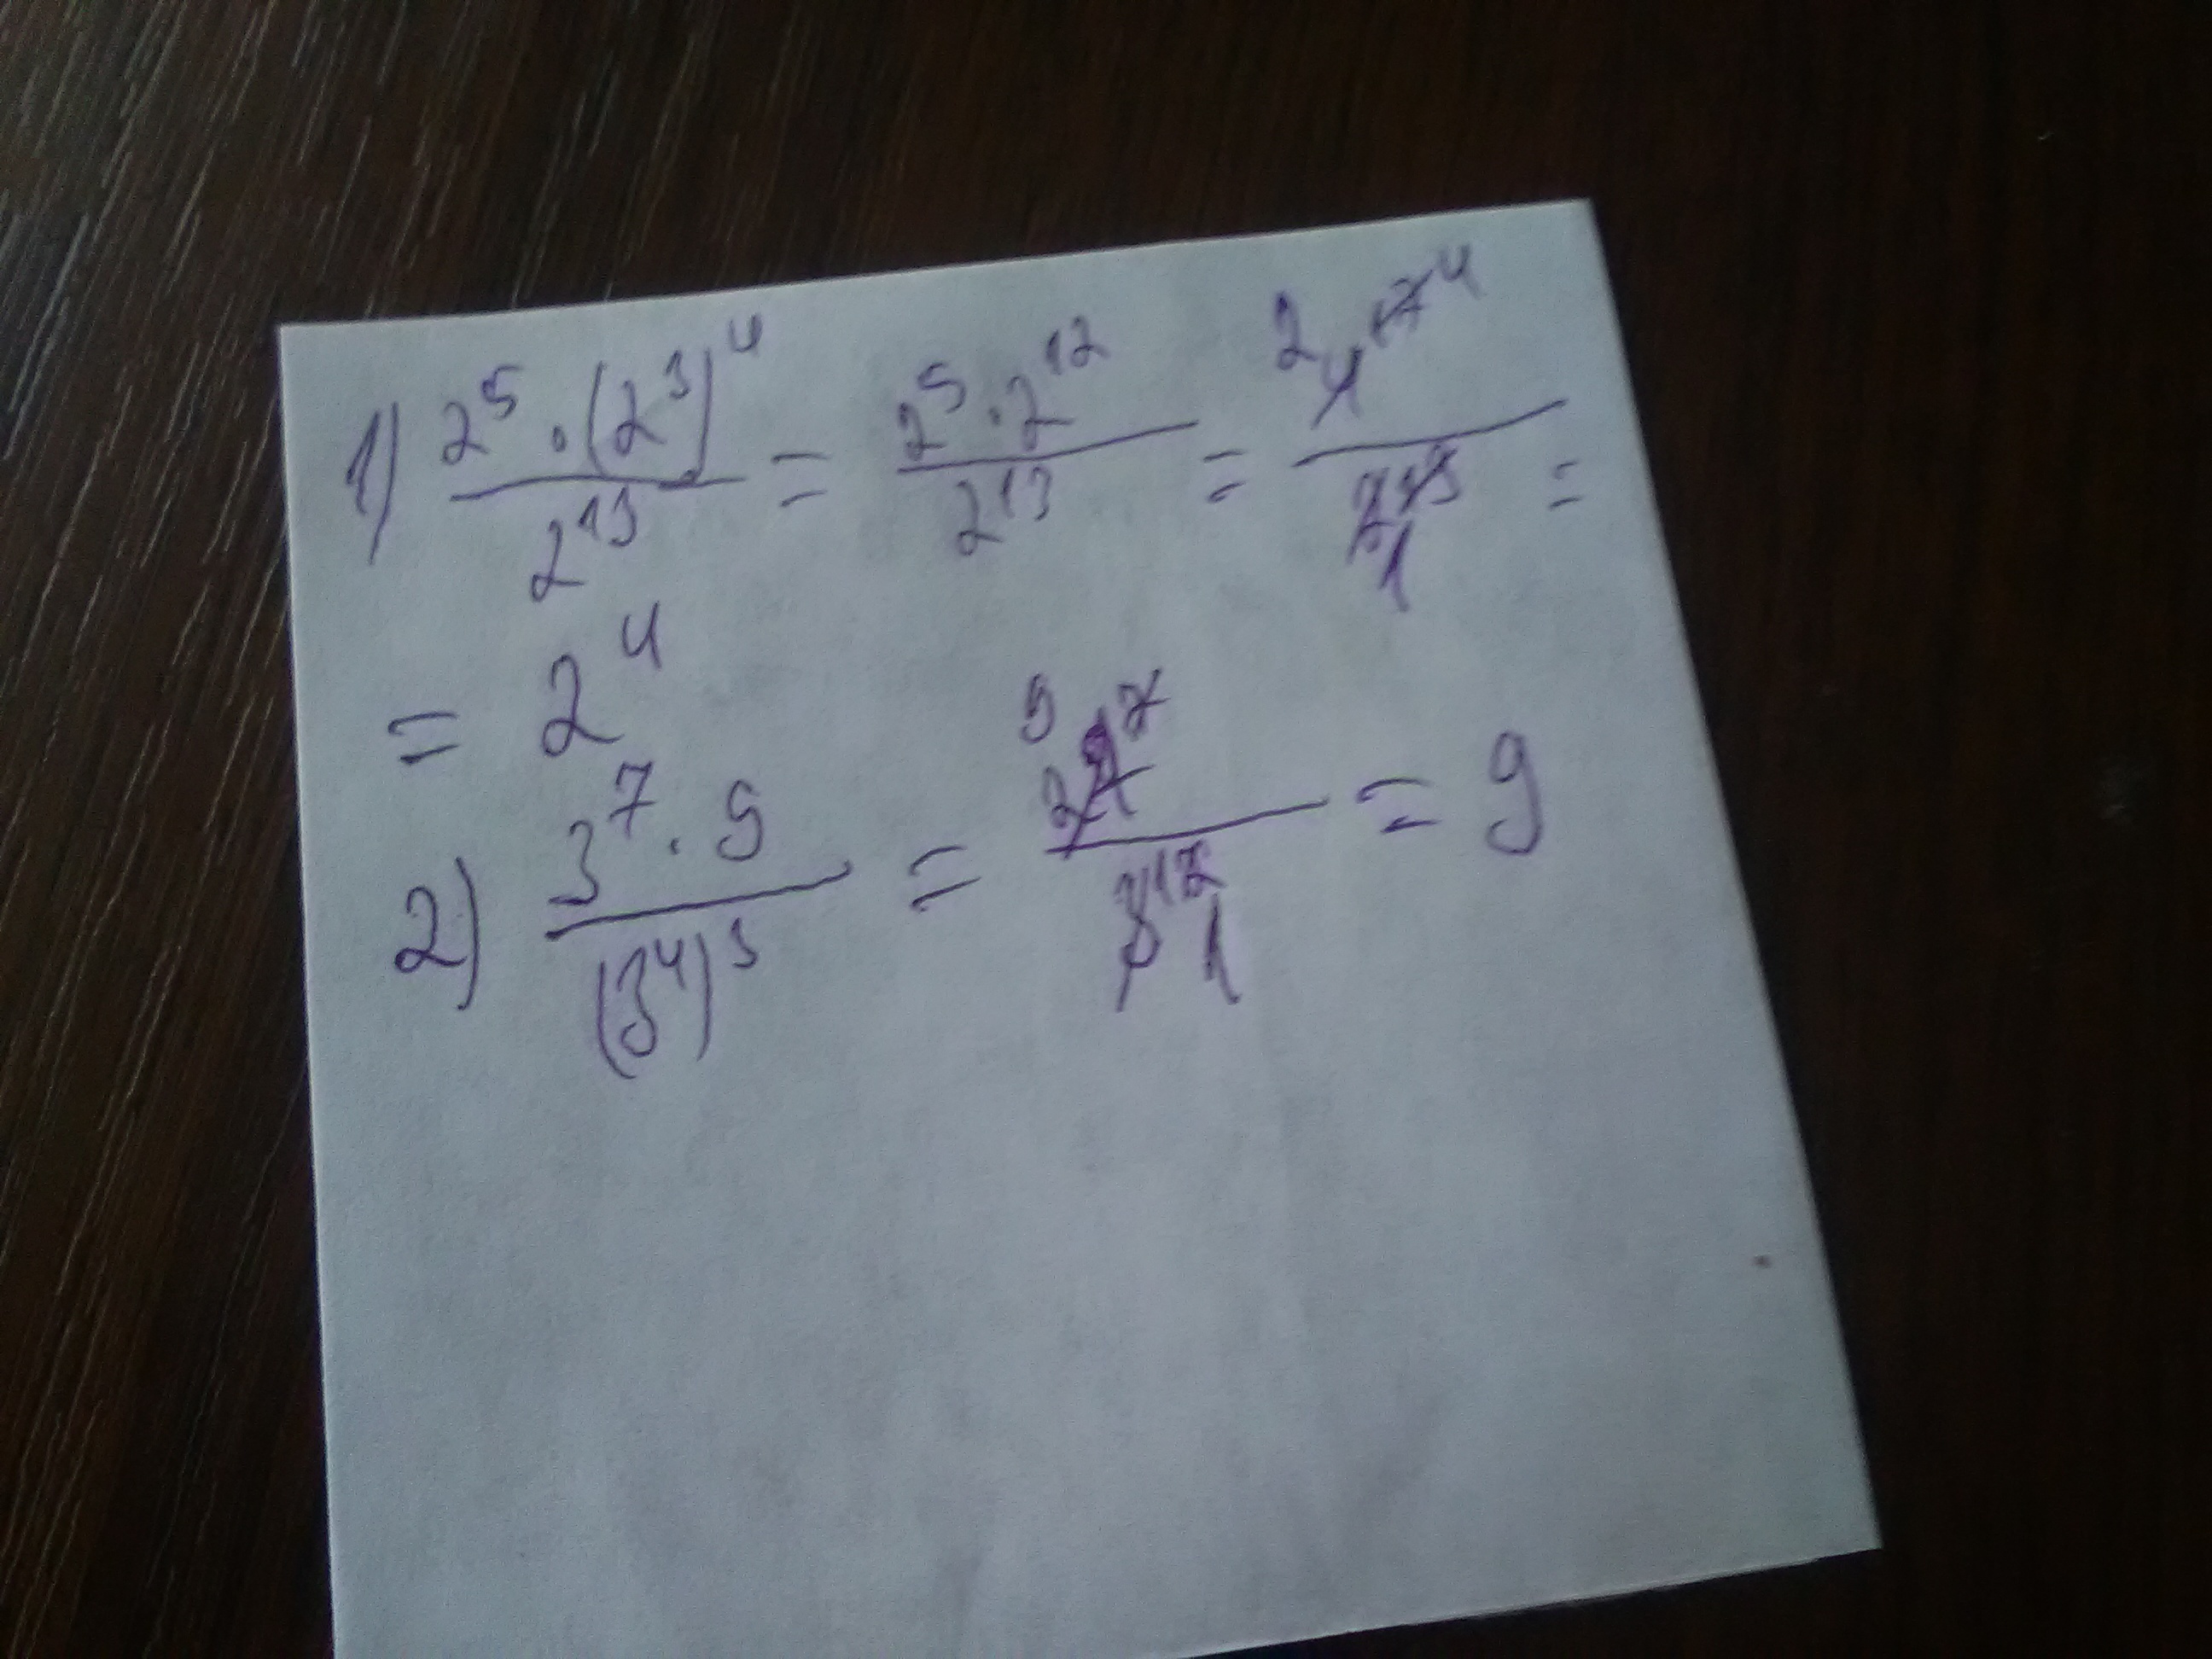 1) (2^5 · (2^3)^4) / 2^13 = (2^5 · 2^12) / 2^13 = 2 4^17 4 / 2^13 1 =
= 2^4
2) (3^7 · 9) / (3^4)^3 = / 1 = 9